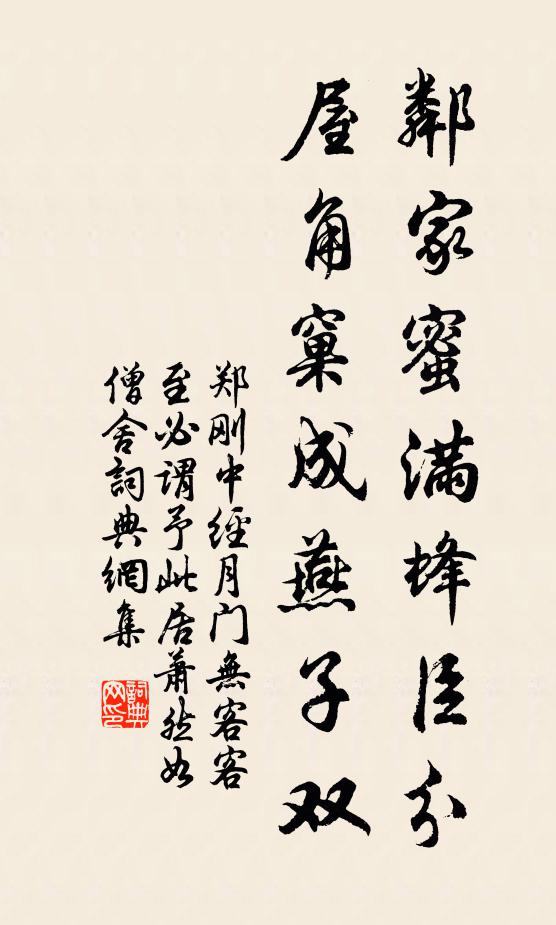 鄰家蜜滿蜂臣分
屋角窠成燕子双
郑刚中經月门無客客
至必謂予此居蕭然如
僧舍詞典網集
詞典网印